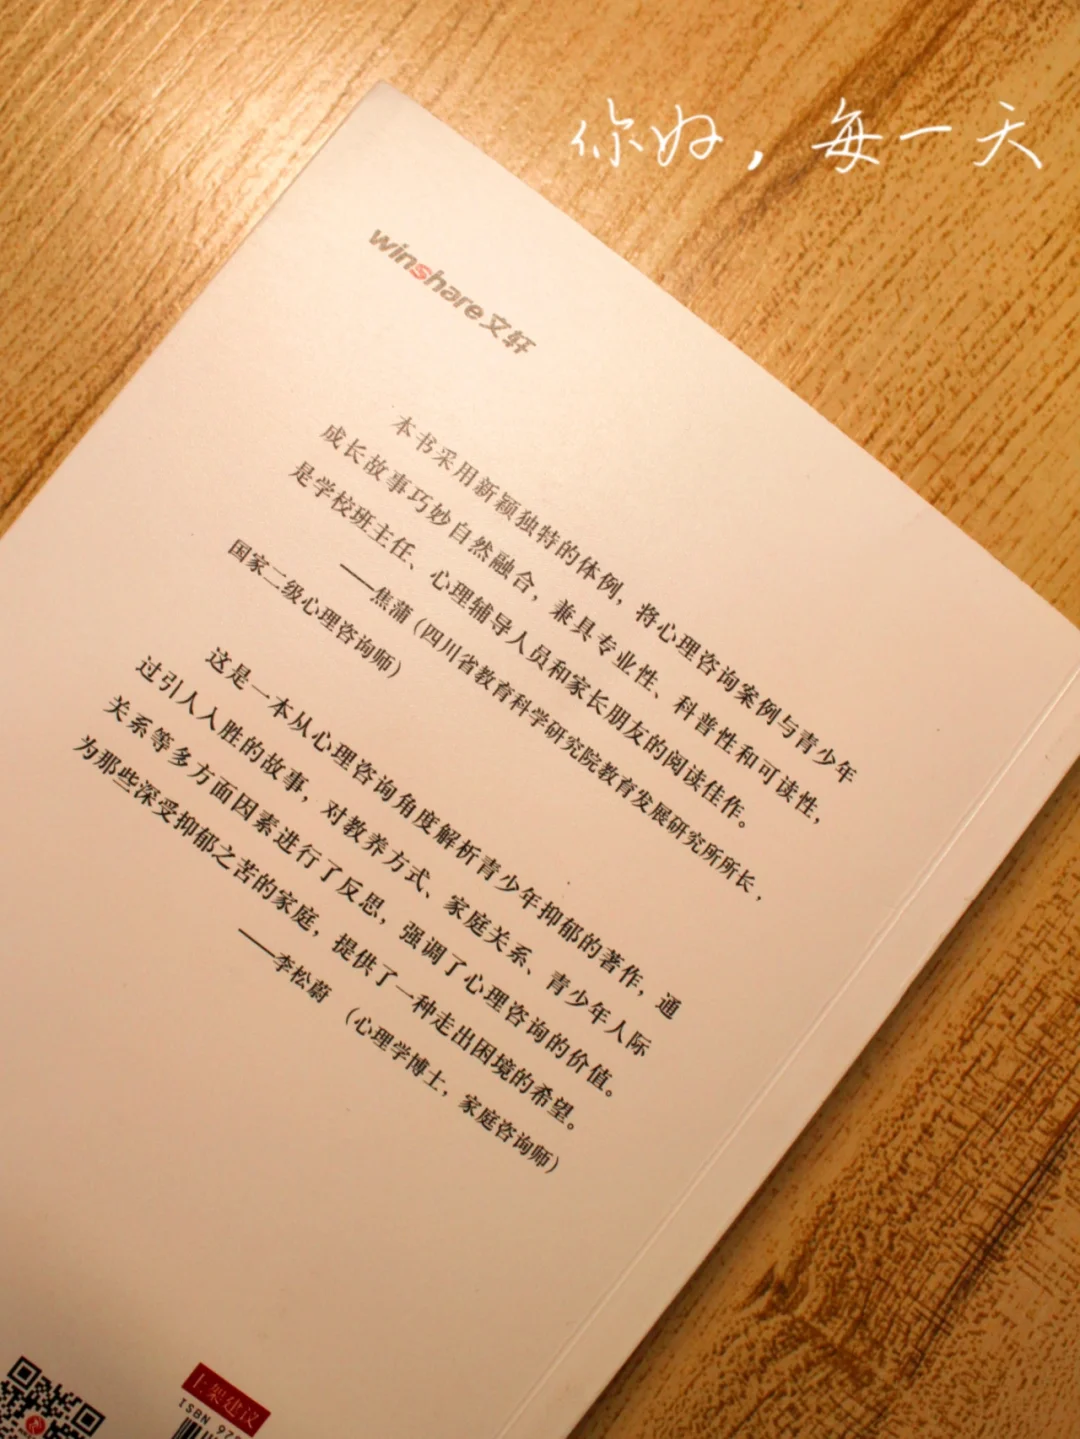 你好，每一天
winshare文轩
本书采用新颖独特的体例，将心理咨询案例与青少年
成长故事巧妙自然融合，兼具专业性、科普性和可读性，
是学校班主任、心理辅导人员和家长朋友的阅读佳作。
——焦蒲（四川省教育科学研究院教育发展研究所所长，
国家二级心理咨询师）
这是一本从心理咨询角度解析青少年抑郁的著作，通
过引人入胜的故事，对教养方式、家庭关系、青少年人际
关系等多方面因素进行了反思，强调了心理咨询的价值。
为那些深受抑郁之苦的家庭，提供了一种走出困境的希望。
——李松蔚（心理学博士，家庭咨询师）
上架建议
ISBN 978